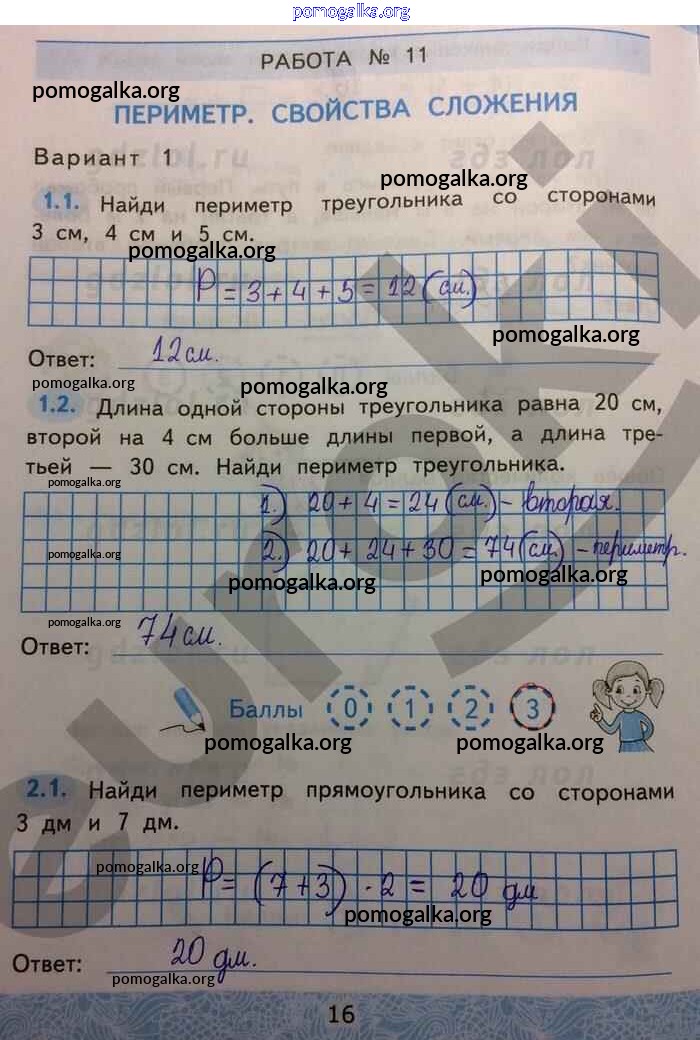 pomogalka.org
РАБОТА № 11
pomogalka.org
ПЕРИМЕТР. СВОЙСТВА СЛОЖЕНИЯ
Вариант 1
pomogalka.org
1.1. Найди периметр треугольника со сторонами
3 см, 4 см и 5 см.
pomogalka.org
P = 3 + 4 + 5 = 12 (см.)
pomogalka.org
Ответ: 12 см.
pomogalka.org
pomogalka.org
1.2. Длина одной стороны треугольника равна 20 см,
второй на 4 см больше длины первой, а длина тре-
тьей — 30 см. Найди периметр треугольника.
pomogalka.org
1.) 20 + 4 = 24 (см.) - вторая.
2.) 20 + 24 + 30 = 74 (см.) - периметр.
pomogalka.org
pomogalka.org
pomogalka.org
pomogalka.org
Ответ: 74 см.
Баллы 0 1 2 3
pomogalka.org
pomogalka.org
2.1. Найди периметр прямоугольника со сторонами
3 дм и 7 дм.
pomogalka.org
P = (7 + 3) · 2 = 20 дм
pomogalka.org
Ответ: 20 дм.
pomogalka.org
16